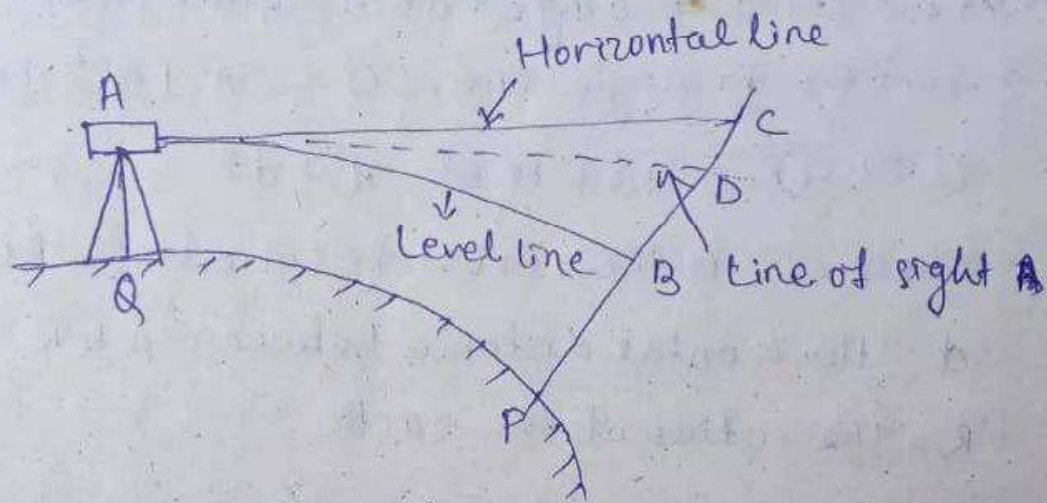 Horizontal line
A
C
D
Level line
B
Line of sight A
Q
P